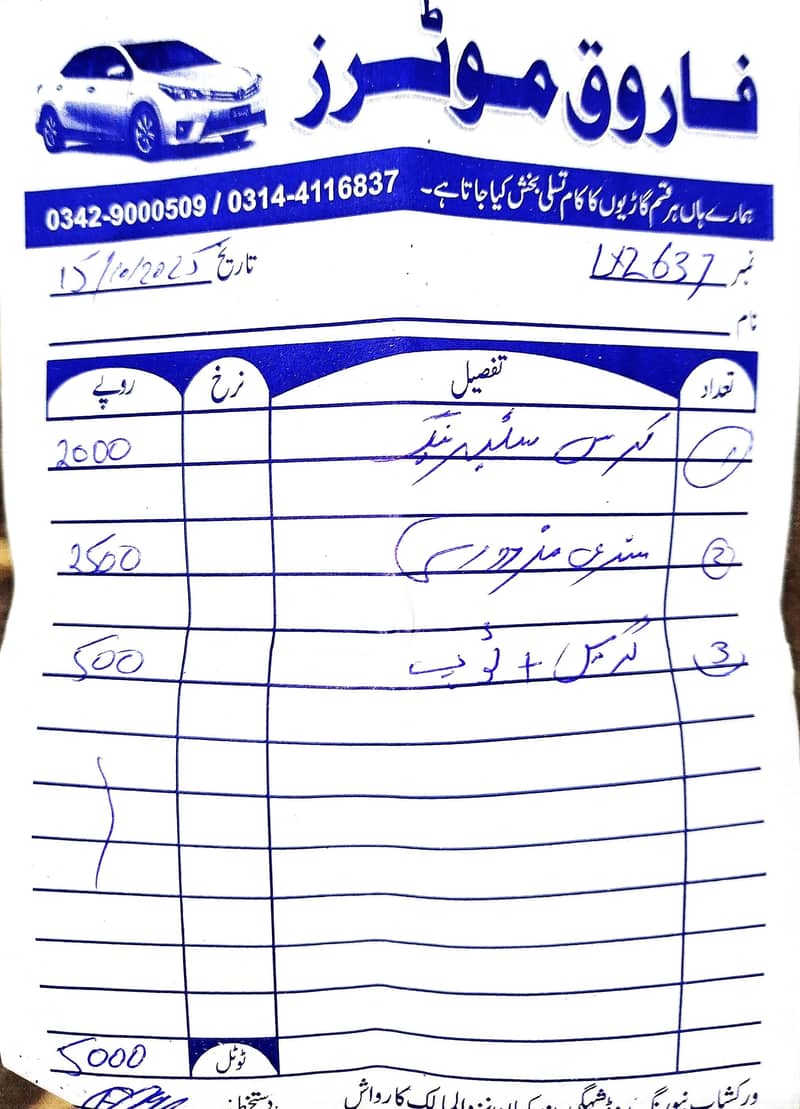 فاروق موٹرز
ہمارے ہاں ہر قسم گاڑیوں کا کام تسلی بخش کیا جاتا ہے۔ 0342-9000509 / 0314-4116837
نمبر LXZ 637 تاریخ 15/10/2025
نام
تعداد تفصیل نرخ روپے
1 2000
2 مزدوری 2500
3 گریس + ٹیپ 500
ٹوٹل 5000
ورکشاپ نیو رنگ روڈ دستخط